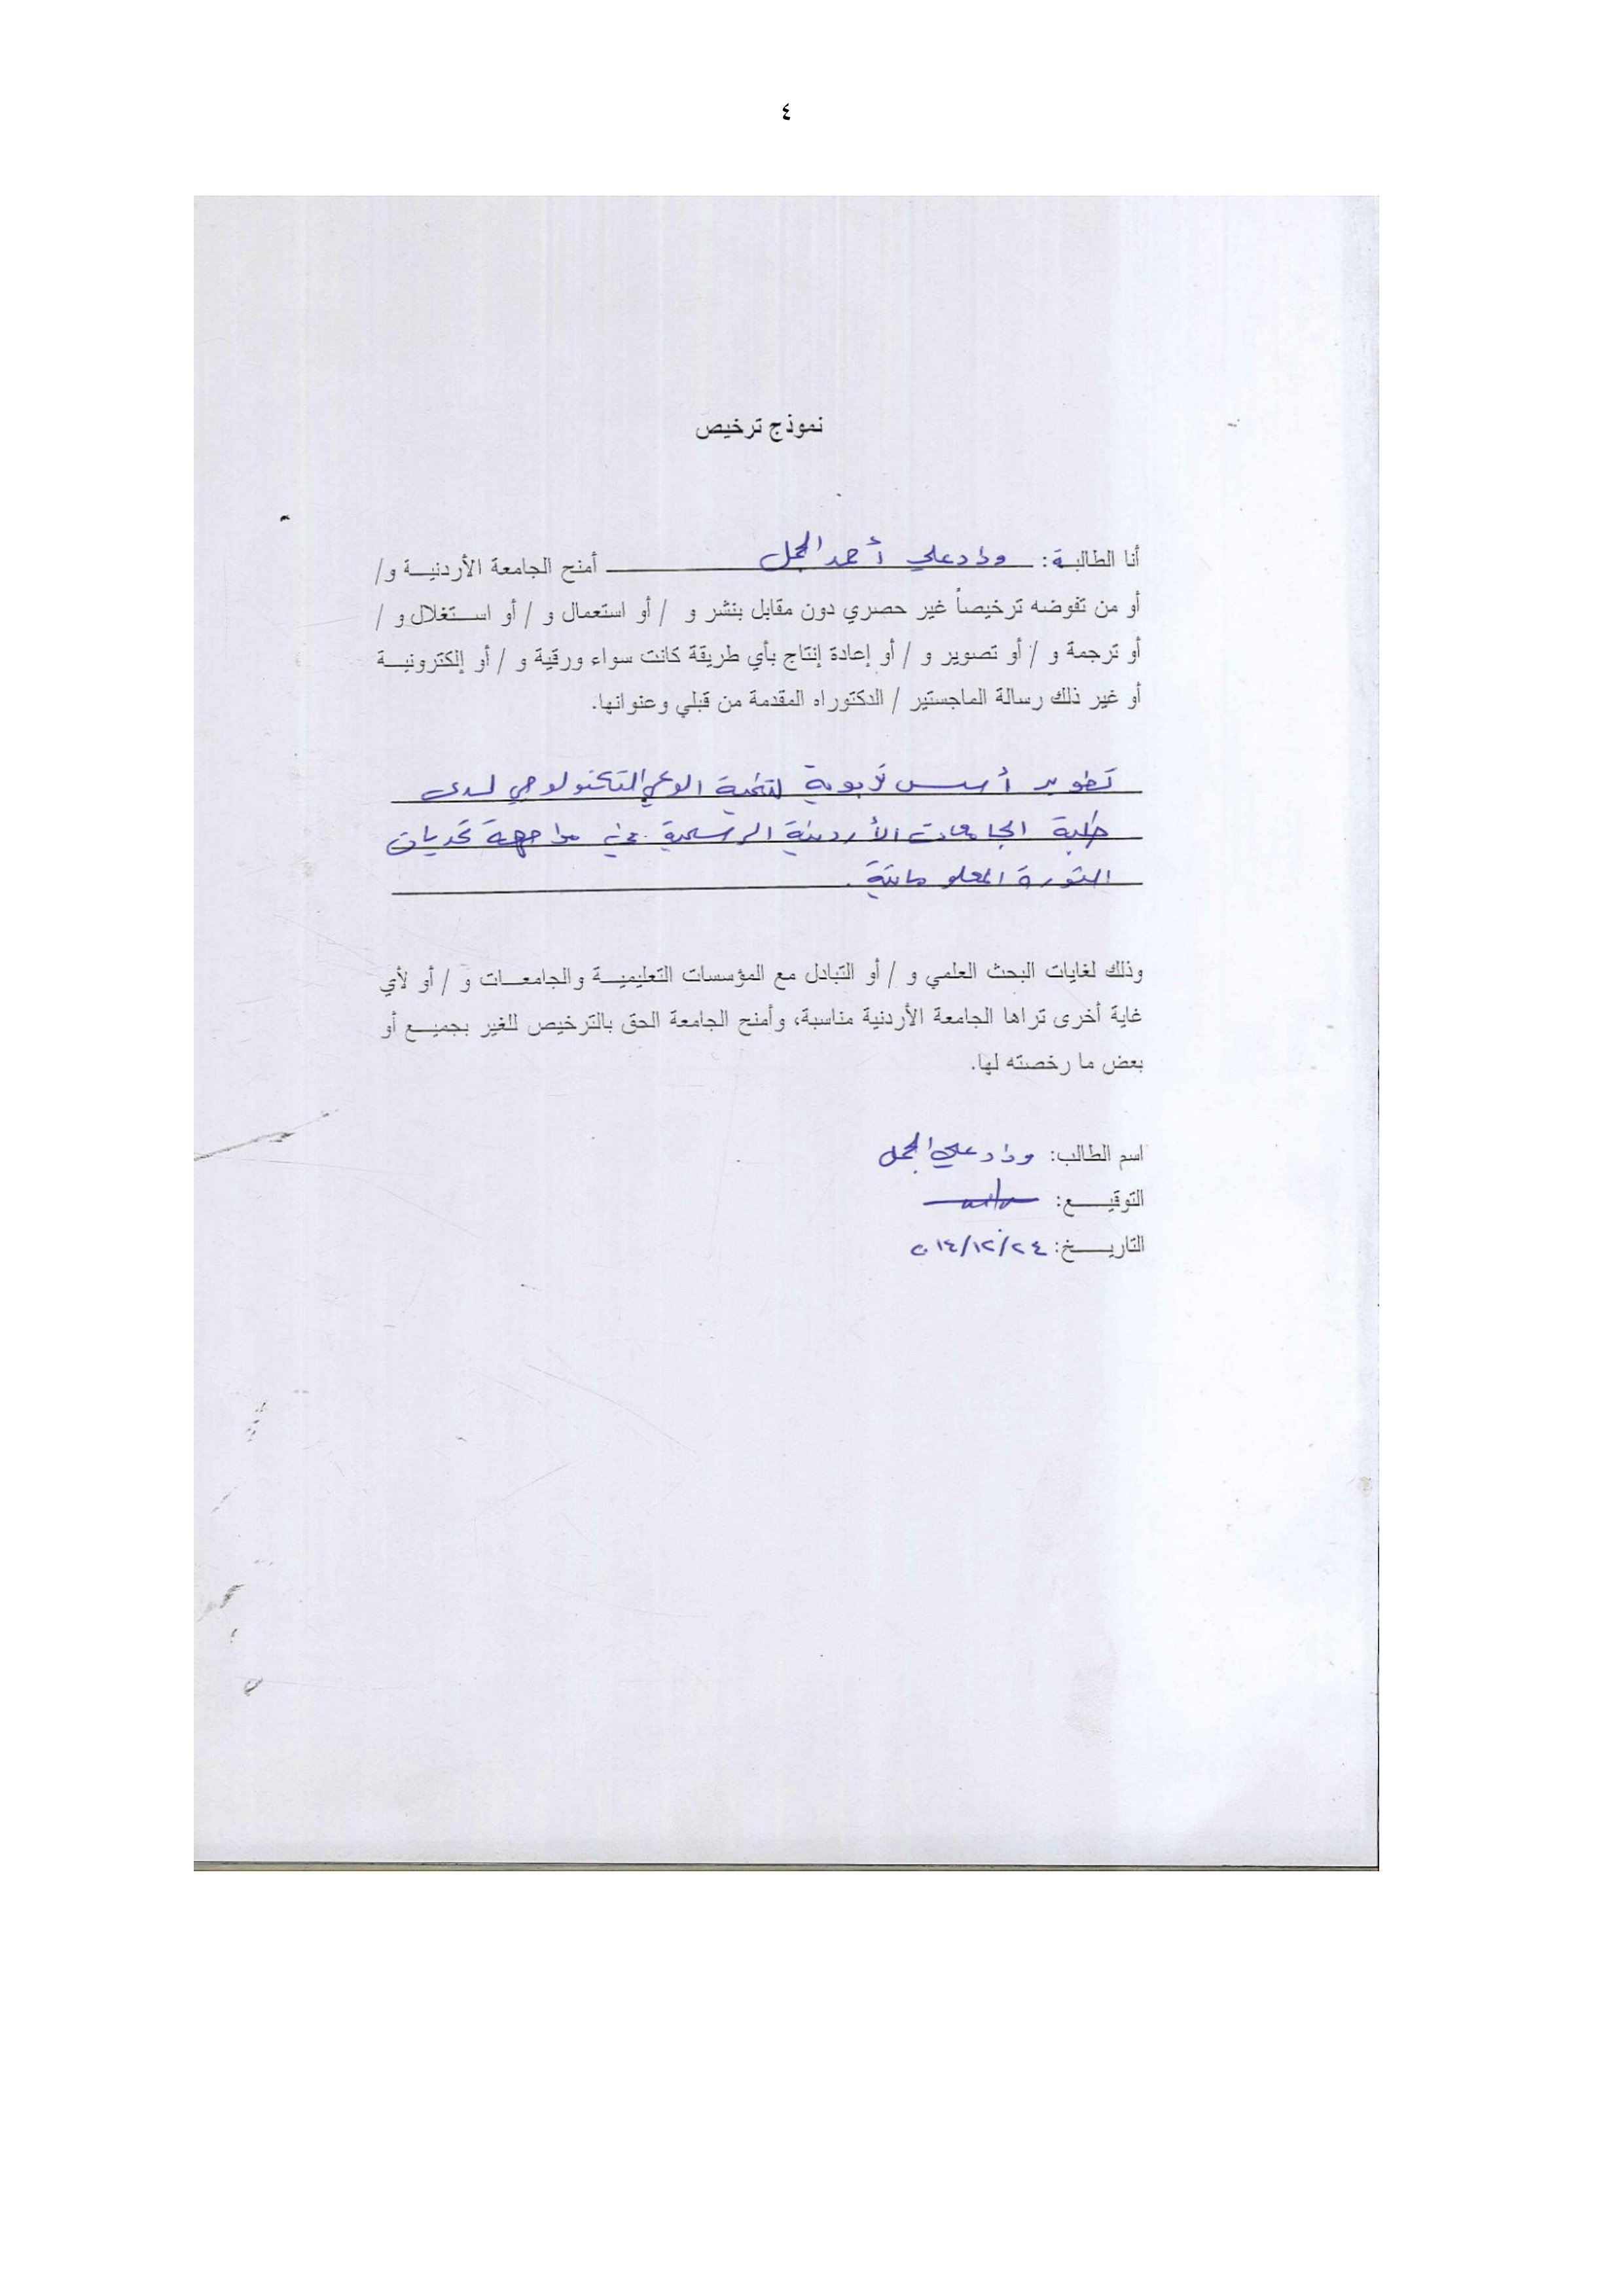 ٤
نموذج ترخيص
أنا الطالبة: وداد علي أحمد الجمل أمنح الجامعة الأردنية و/
أو من تفوضه ترخيصاً غير حصري دون مقابل بنشر و / أو استعمال و / أو استغلال و /
أو ترجمة و / أو تصوير و / أو إعادة إنتاج بأي طريقة كانت سواء ورقية و / أو إلكترونية
أو غير ذلك رسالة الماجستير / الدكتوراه المقدمة من قبلي وعنوانها.
تطوير أسس تربوية لتنمية الوعي التكنولوجي لدى
طلبة الجامعات الأردنية الرسمية في مواجهة تحديات
الثورة المعلوماتية .
وذلك لغايات البحث العلمي و / أو التبادل مع المؤسسات التعليمية والجامعات و / أو لأي
غاية أخرى تراها الجامعة الأردنية مناسبة، وأمنح الجامعة الحق بالترخيص للغير بجميع أو
بعض ما رخصته لها.
اسم الطالب: وداد علي الجمل
التوقيع:
التاريخ: ٢٤/١٢/٠١٤